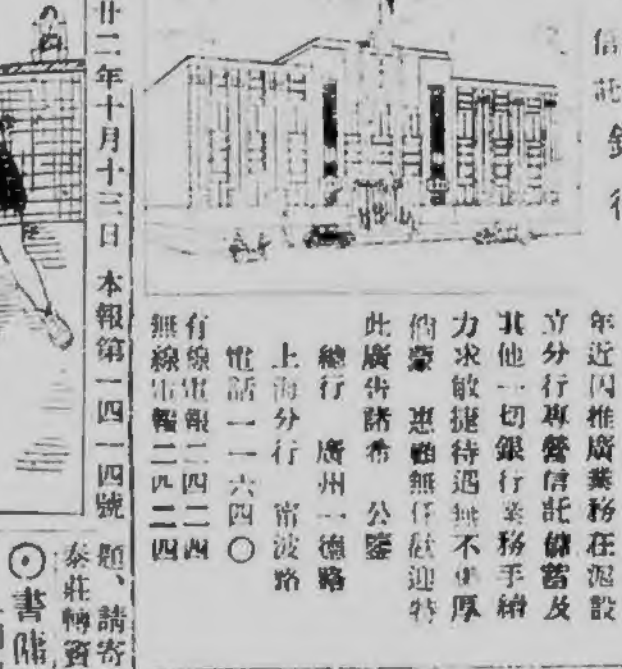 信託
銀行
年近因推廣業務在滬設
立分行專營信託儲蓄及
其他一切銀行業務手續
力求敏捷待遇無不優厚
倘蒙 惠顧無任歡迎特
此廣告諸希 公鑒
總行 廣州一德路
上海分行 甯波路
電話一一六四〇
有線電報二四二四
無線電報二四二四
廿二年十月十三日 本報第一四一四號
題、請寄
泰莊轉資
⊙書